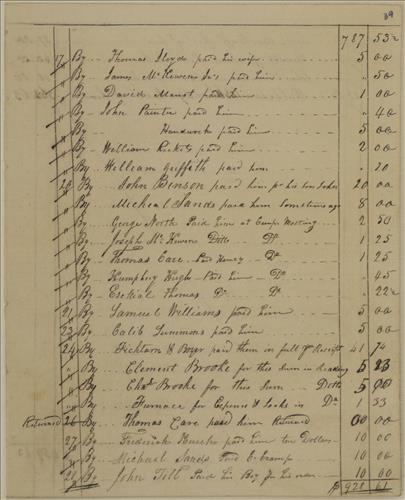 89
787 53½
17 By Thomas Lloyd paid his wife 5 00
" By James McKewens Jnr paid him " 50
" By David Manot paid him 1 00
" By John Painter paid him " 40
" By Handwork paid him 5 00
" By William Rickets paid him 2 00
" By William Griffith paid him " 20
20 By John Benson paid him pr his son John 20 00
" By Micheal Sands paid him Sometime ago 8 00
" By George North Paid him at Camp Meeting 2 50
" By Joseph McKewens Ditto Do 1 25
" By Thomas Cace Paid Henry Do 1 25
" By Humphry Hugh Paid him Do " 45
" By Esekial Thomas Do Do " 22½
21 By Samuel Williams paid him 5 00
22 By Calib Lummons paid him 5 00
24 By & Boyer paid them in full pr Receipt 41 74
" By Clement Brooke for this Sum in 5 23
" By Chas Brooke for this Sum Ditto 5 00
" By Furnace for Expenses & Locks in Do 1 33
Returned 26 By Thomas Care paid him Returned 00 00
27 By Frederick paid him ten Dollars 10 00
" By Michael Sands Paid 10 00
28 By John Till Paid his Boy for his 10 00
$ 920 61